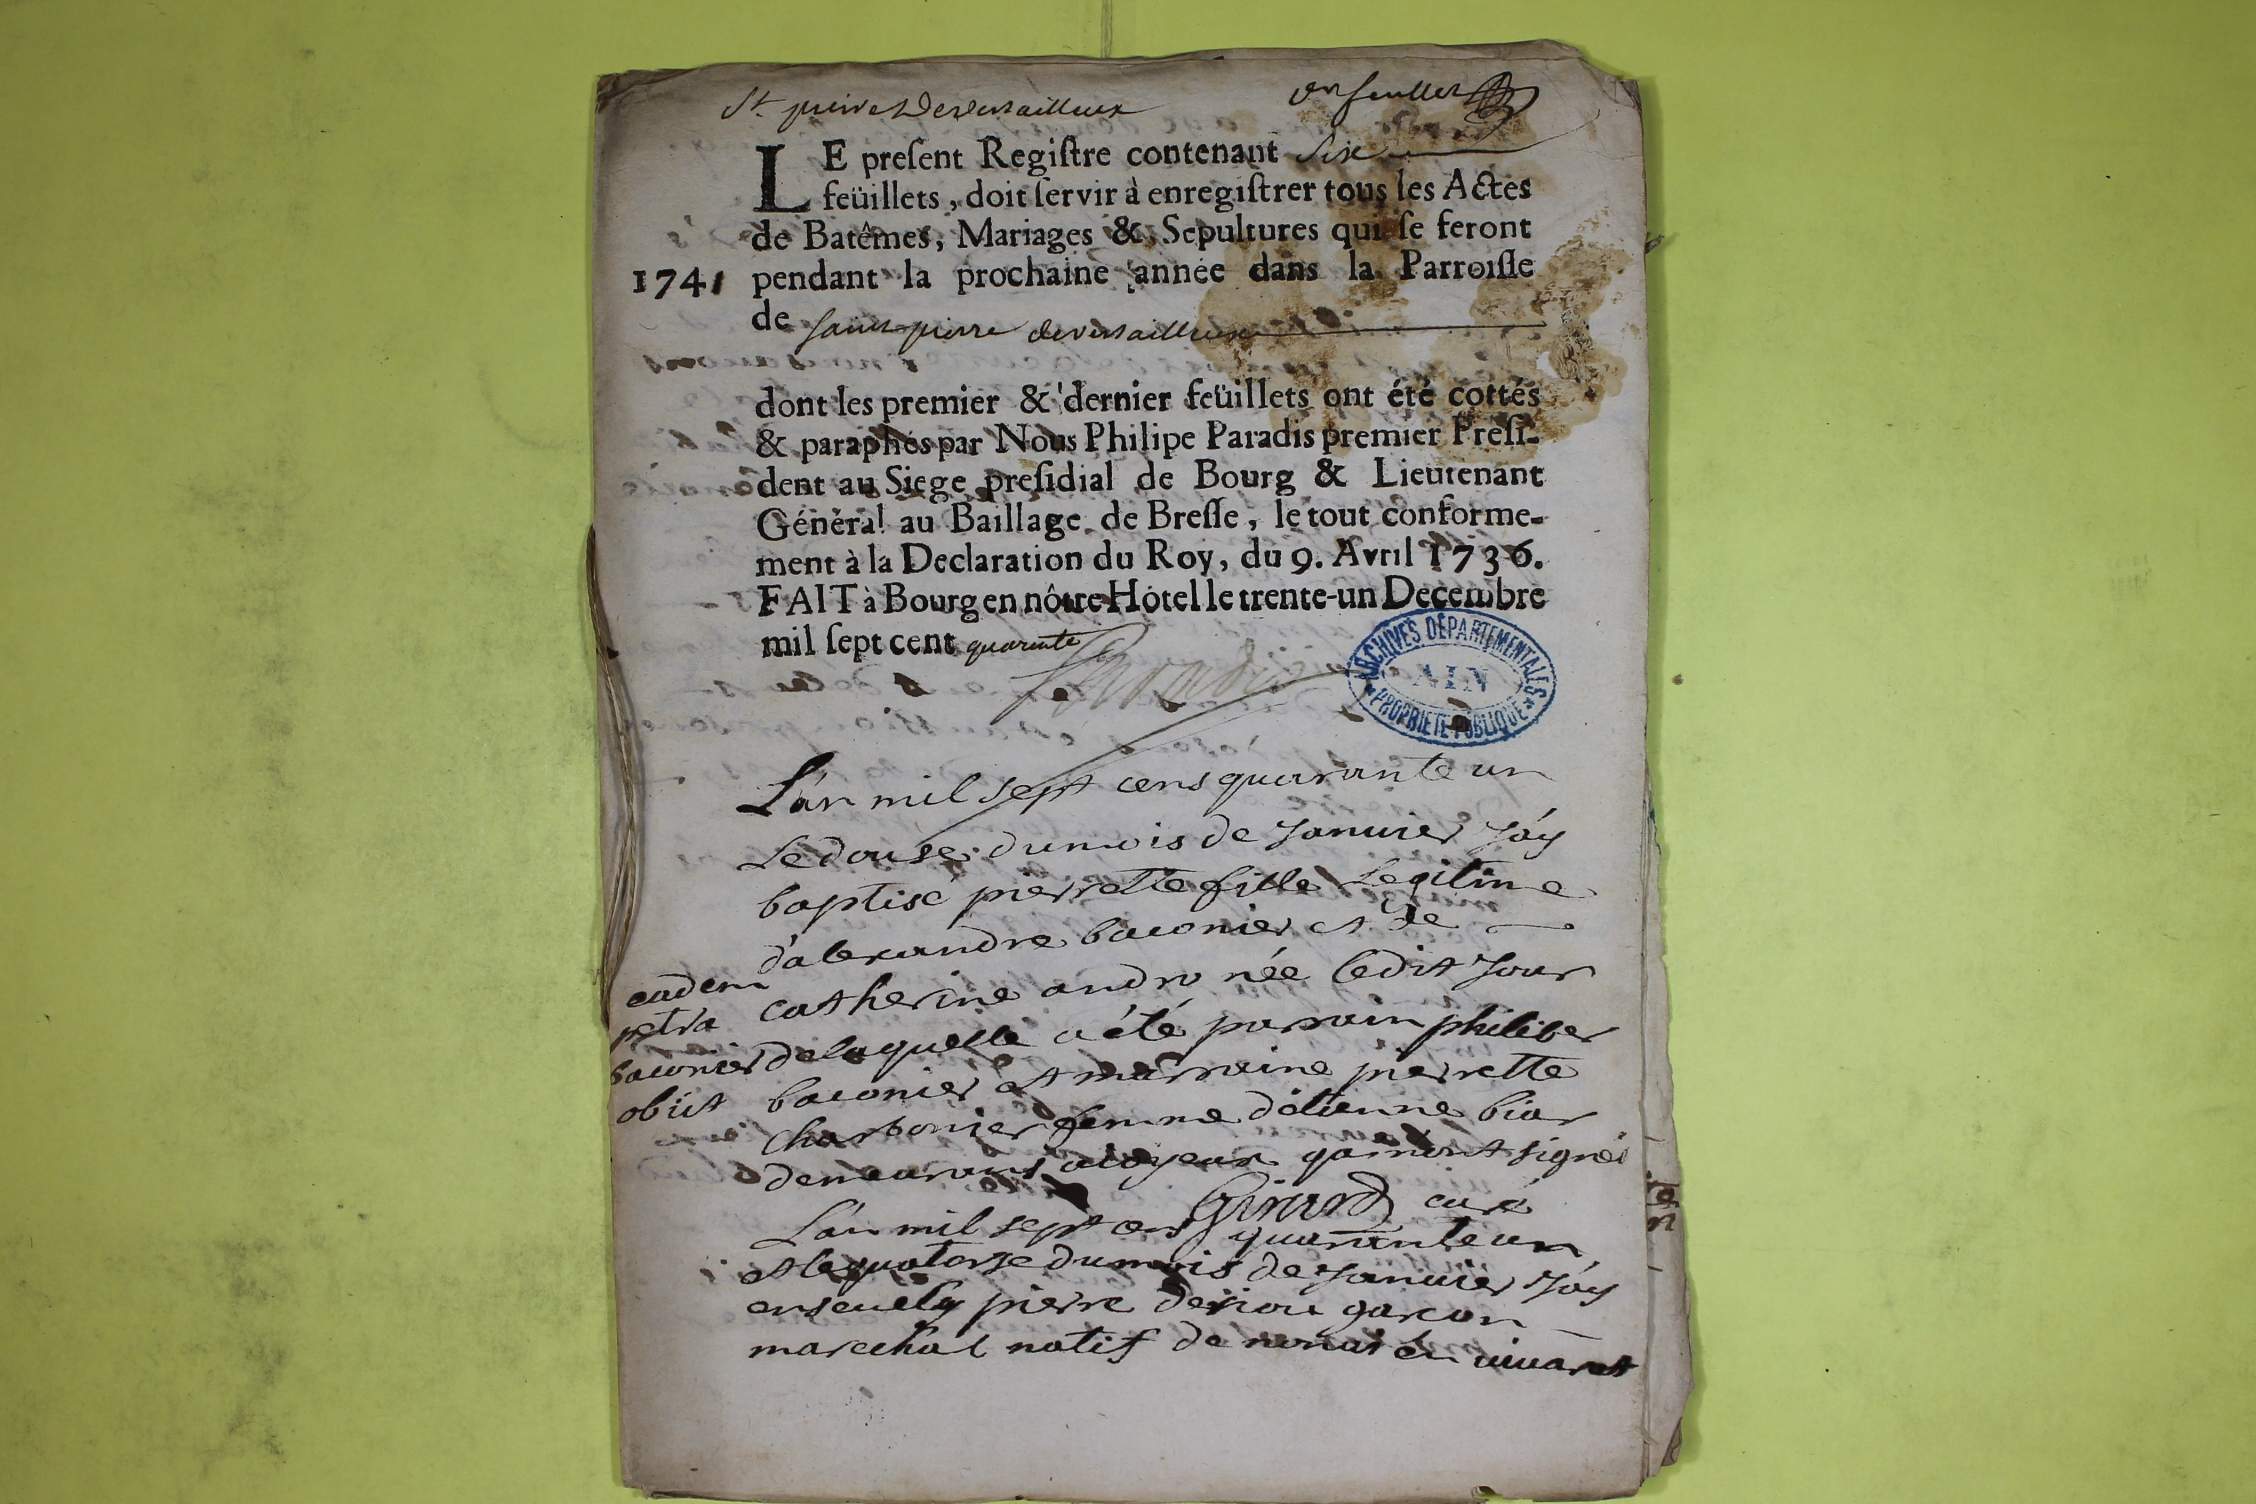 St. pierre De versailleux
un feuillet
LE preſent Regiſtre contenant Six
feüillets, doit ſervir à enregiſtrer tous les Actes
de Batêmes, Mariages & Sepultures qui ſe feront
1741 pendant la prochaine année dans la Parroiſſe
de saint pierre de versailleux
dont les premier & dernier feüillets ont été cottés
& paraphés par Nous Philipe Paradis premier Preſi-
dent au Siege preſidial de Bourg & Lieutenant
Général au Baillage de Breſſe, le tout conforme-
ment à la Declaration du Roy, du 9. Avril 1736.
FAIT à Bourg en nôtre Hôtel le trente-un Decembre
mil ſept cent quarante
Paradis
ARCHIVES DÉPARTEMENTALES
AIN
PROPRIÉTÉ PUBLIQUE
L'an mil sept cens quarante un
Le douse du mois de Januier J'ay
baptisé pierrette fille Legitime
d'alexandre baconier et de
catherine andro née ledit Jour
de laquelle a été parrain philiber
baconier et marraine pierrette
charbonier femme d'étienne biar
demeurans qui n'ont signés
Girard curé
eadem
petra
baconier
obiit
L'an mil sept cens quarante un
et le quatorse du mois de Januier J'ay
enseuely pierre garcon
marechal natif de en viuaret